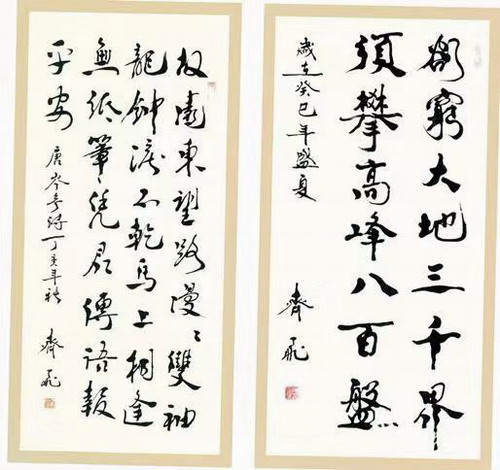 欲窮大地三千界
須攀高峰八百盤
歲在癸巳年盛夏
齊飛
故園東望路漫〻雙袖
龍鐘淚不乾馬上相逢
無紙筆憑君傳語報
平安
唐岑參詩丁亥年秋
齊飛